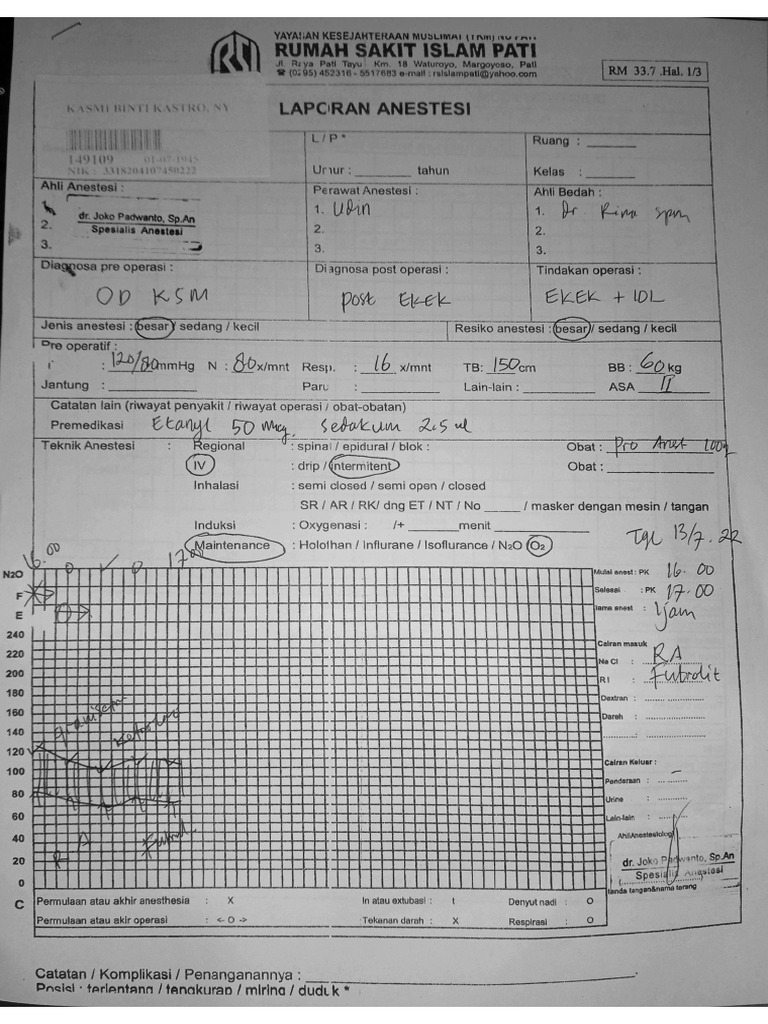 YAYASAN KESEJAHTERAAN MUSLIMAT (YKM) NU PATI
RUMAH SAKIT ISLAM PATI
Jl. Raya Pati Tayu Km. 18 Waturoyo, Margoyoso, Pati
☎ (0295) 452316 - 5517683 e-mail : rsislampati@yahoo.com
RM 33.7 .Hal. 1/3
KASMI BINTI KASTRO, NY
LAPORAN ANESTESI
149109 01-07-1945
NIK : 3318204107450222
L / P *
Umur : ________ tahun
Ruang : ________
Kelas : ________
Ahli Anestesi :
2. dr. Joko Padwanto, Sp.An
Spesialis Anestesi
3.
Perawat Anestesi :
1. Udin
2.
3.
Ahli Bedah :
1. dr Rima spm
2.
3.
Diagnosa pre operasi :
OD KSM
Diagnosa post operasi :
post EKEK
Tindakan operasi :
EKEK + IOL
Jenis anestesi : besar / sedang / kecil
Resiko anestesi : besar / sedang / kecil
Pre operatif :
: 120/80 mmHg N : 80 x/mnt Resp. : 16 x/mnt TB: 150 cm BB : 60 kg
Jantung : Paru : Lain-lain : ASA II
Catatan lain (riwayat penyakit / riwayat operasi / obat-obatan)
Premedikasi Etanyl 50 mcg. Sedakum 2.5 ml
Teknik Anestesi : Regional : spinal / epidural / blok : Obat : Pro Anest
IV : drip / intermitent Obat :
Inhalasi : semi closed / semi open / closed
SR / AR / RK/ dng ET / NT / No _____ / masker dengan mesin / tangan
Induksi : Oxygenasi : /+ ________ menit
Maintenance : Holothan / Influrane / Isoflurance / N2O O2
Tgl 13/7.22
16.00 17.00
N2O
F
E
240
220
200
180
160
140
120
100
80
60
40
20
0
C
granisetron
ketorolac
R A
Mulai anest : PK 16.00
Selesai : PK 17.00
lama anest : 1 jam
Cairan masuk
Na Cl : RA
R l : Futrolit
Dextran :
Darah :
Cairan Keluar :
Pendaraan : –
Urine :
Lain-lain :
Ahli Anestesiologi
dr. Joko Padwanto, Sp.An
Spesialis Anestesi
tanda tangan&nama terang
Permulaan atau akhir anesthesia : X In atau extubasi : t Denyut nadi : O
Permulaan atau akir operasi : <- O -> Tekanan darah : X Respirasi : O
Catatan / Komplikasi / Penanganannya :
Posisi : terlentang / tengkurap / miring / duduk *